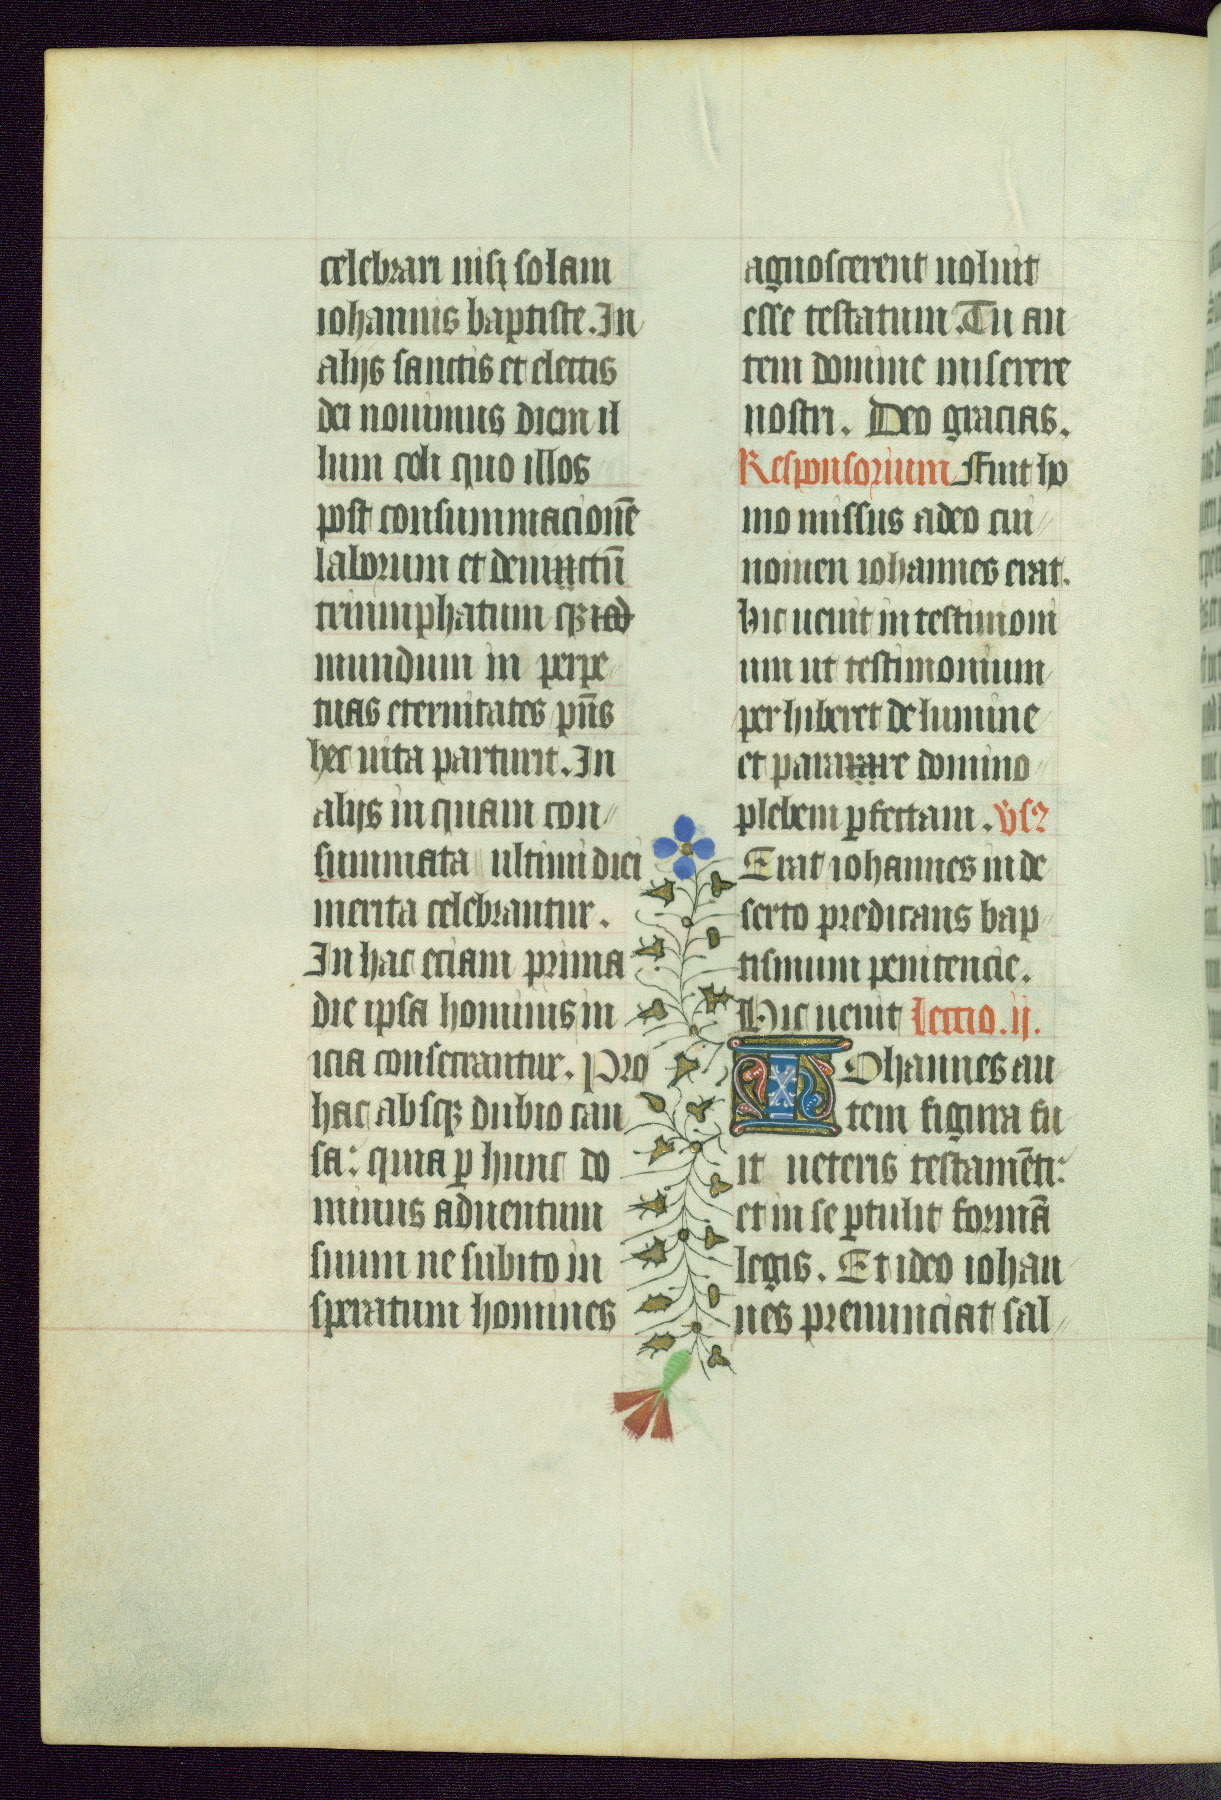 celebrari nisi solam
iohannis baptiste. In
alijs sanctis et electis
dei nouimus diem il
lum coli quo illos
post consummacionē
laborum et deuictū
triumphatum qȝ
mundum in perpe
tuas eternitates pn̄s
hec uita parturit. In
alijs in quam con
summata ultimi diei
merita celebrantur.
In hac eciam prima
die ipsa hominis in
icia consecrantur. Pro
hac absqȝ dubio cau
sa: quia ꝑ hunc do
minus aduentum
suum ne subito in
speratum homines
agnoscerent uoluit
esse testatum. Tu au
tem domine miserere
nostri. Deo gracias.
Responsorium Fuit ho
mo missus adeo cui
nomen iohannes erat.
hic uenit in testimoni
um ut testimonium
perhiberet de lumine
et parare domino
plebem ꝑfectam. v̄s
Erat iohannes in de
serto predicans bap
tismum penitencie.
Hic uenit Lectio. ij.
IOhannes au
tem figura fu
it ueteris testamēti:
et in se ꝑtulit formā
legis. Et ideo iohan
nes prenunciat sal